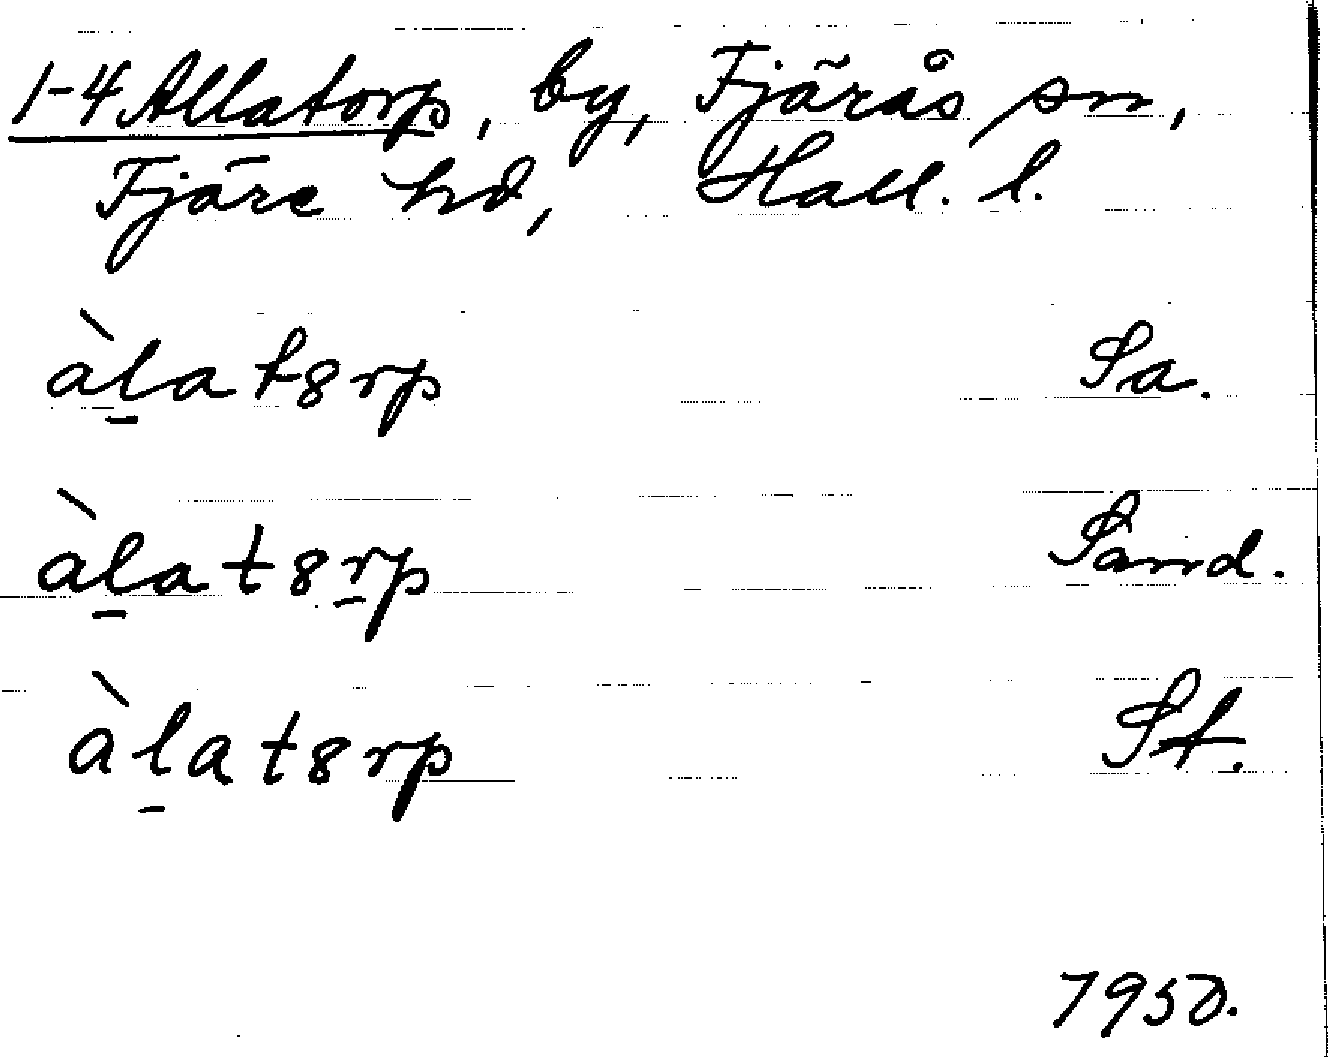 1-4 Allatorp, by, Fjärås sn,
Fjäre hd, Hall. l.
àl̲at8rp Sa.
àl̲at8r̲p Sand.
àl̲at8rp St.
1950.